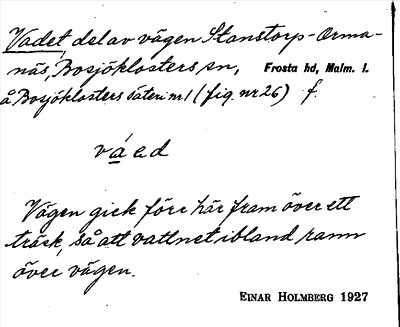 Vadet, del av vägen Stanstorp-Orma-
näs, Bosjöklosters sn, Frosta hd, Malm. l.
å Bosjöklosters säteri nr 1 (fig. nr 26) f.
váɛd
Vägen gick förr här fram över ett
träsk, så att vattnet ibland rann
över vägen.
EINAR HOLMBERG 1927